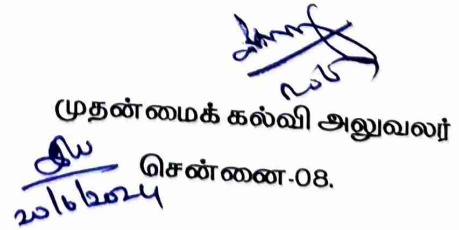 முதன்மைக் கல்வி அலுவலர்
சென்னை-08.
20/6/2024